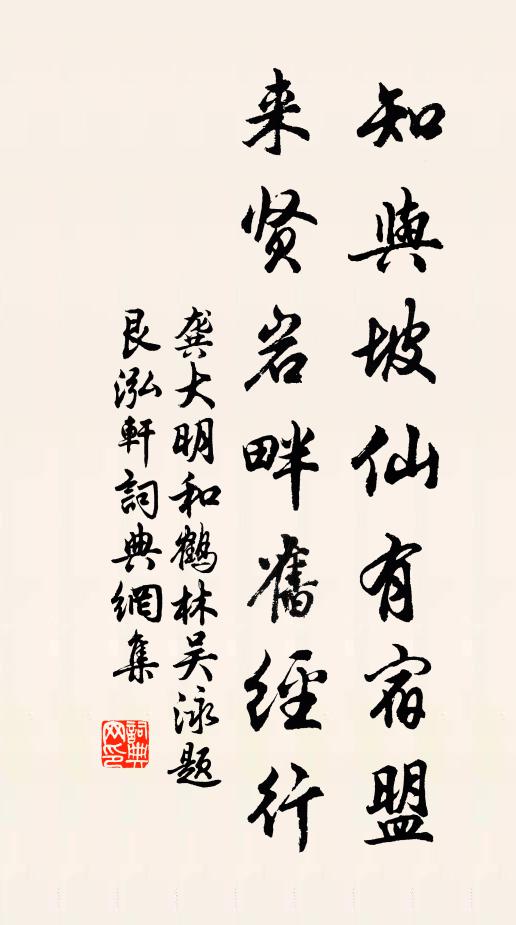 知與坡仙有宿盟
来贤岩畔舊經行
龚大明和鶴林吴泳题
艮泓軒詞典網集
詞典网印